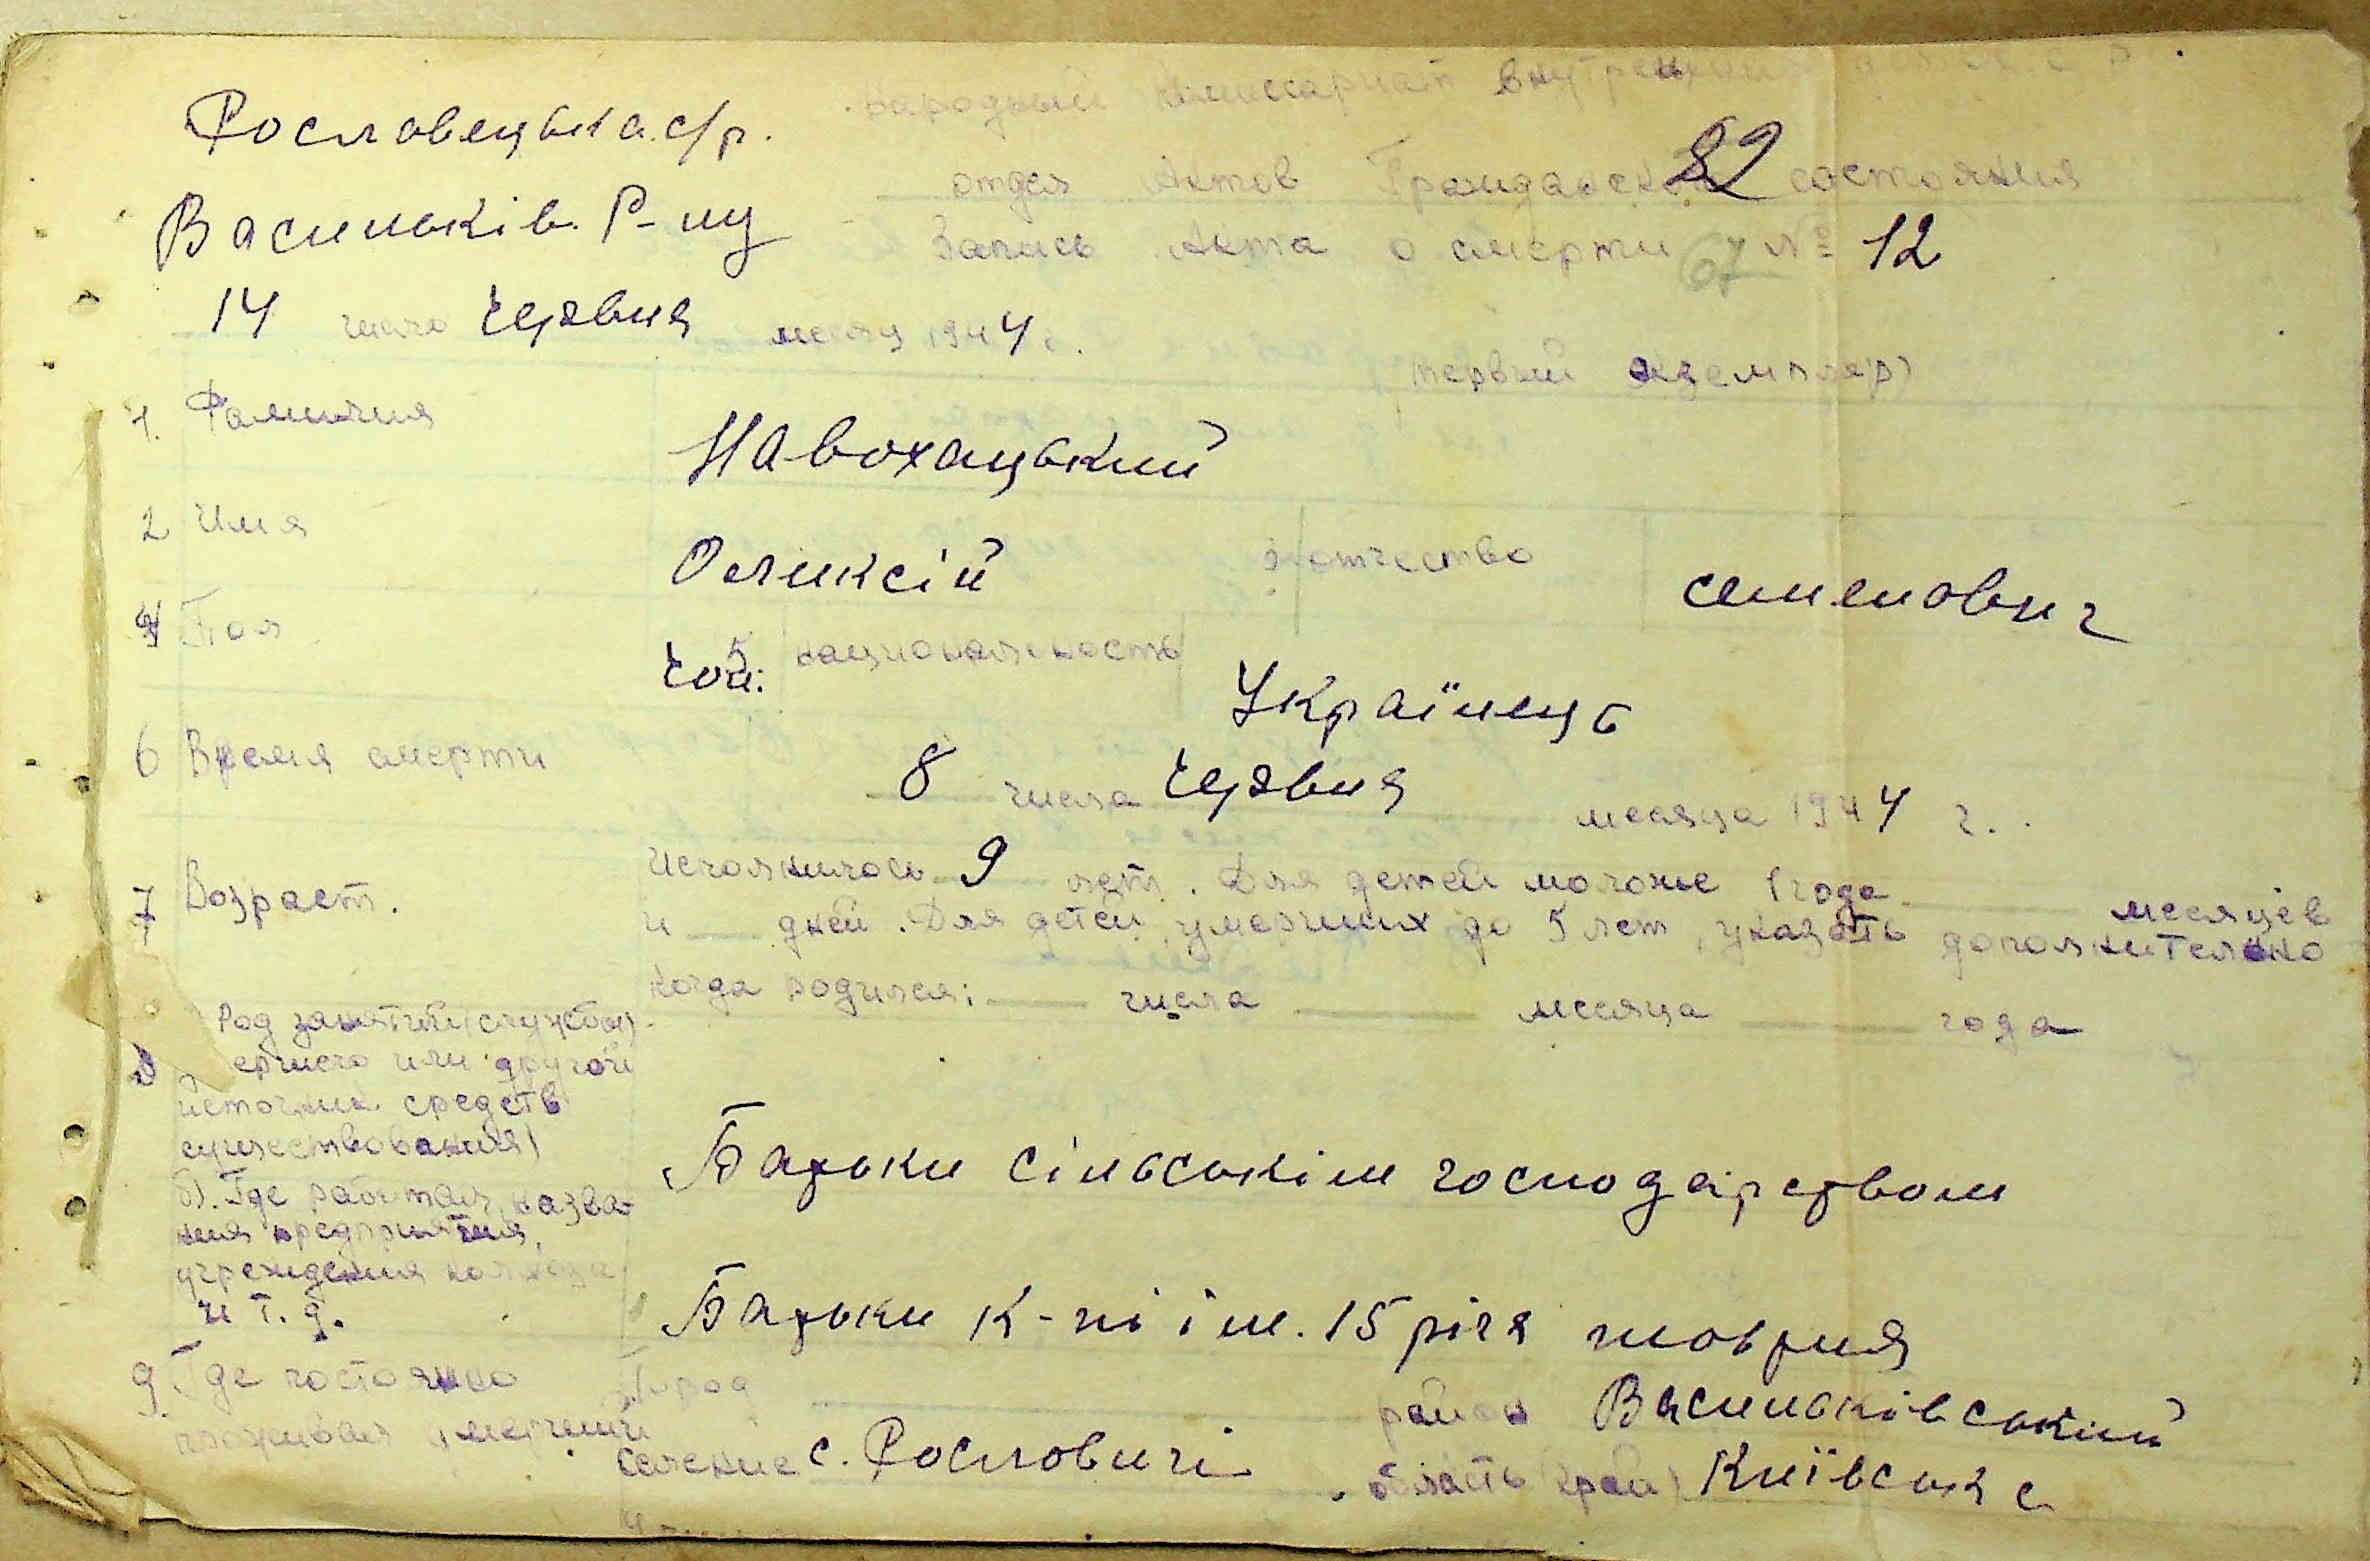 Народный комиссариат внутрен
Рословецька с/р.
82
отдел Актов Гражданского состояния
Васильків. Р-ну
Запись Акта о смерти 67 № 12
14 число червня месяц 1944 г.
первый экземпляр)
1. Фамилия Навохацький
2 Имя Оликсій Отчество семенович
4 Пол чол. 5 национальность Українець
6 Время смерти 8 числа червня месяца 1944 г.
7 Возраст. Исполнилось 9 лет. Для детей моложе 1 года месяцев
и дней. Для детей, умерших до 5 лет, указать дополнительно
когда родился: числа месяца года
8 Род занятий (службы)
или другой
источник средств
существования)
Батьки сільськім господарством
б). Где работал, назва-
ния предприятия,
учреждения колхоза
и т. д.
Батьки К-пі ім. 15 річя жовтня
9. Где постоянно
проживал умерший
Город район Васильківський
селение с. Рословичі область (край) Київська